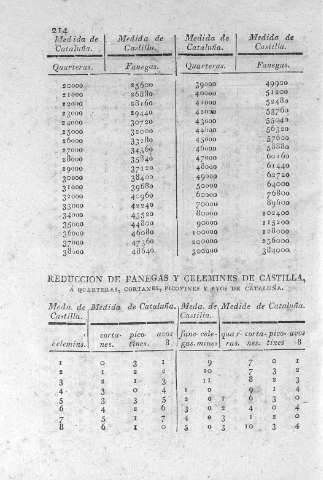 214
Medida de Medida de Medida de Medida de
Cataluña. Castilla. Cataluña. Castilla.
Quarteras. Fanegas. Quarteras. Fanegas.
20000 25600 39000 49920
21000 26880 40000 51200
22000 28160 41000 52480
23000 29440 42000 53760
24000 30720 43000 55040
25000 32000 44000 56320
26000 33280 45000 57600
27000 34560 46000 58880
28000 35840 47000 60160
29000 37120 48000 61440
30000 38400 49000 62720
31000 39680 50000 64000
32000 40960 60000 76800
33000 42240 70000 89600
34000 43520 80000 102400
35000 44800 90000 115200
36000 46080 100000 128000
37000 47360 200000 256000
38000 48640 300000 384000
REDUCCION DE FANEGAS Y CELEMINES DE CASTILLA,
A QUARTERAS, CORTANES, PICOTINES Y AVOS DE CATALUÑA.
Meda. de Medida de Cataluña. Meda. de Medide de Cataluña.
Castilla. Castilla.
corta- pico- avos fane-cele- quar-corta-pico-avos
celemins. nes. tines. 8. gas.mines ras. nes. tines 8
1 0 3 1 9 7 0 1
2 1 2 2 10 7 3 2
3 2 1 3 11 8 2 3
4 3 0 4 1 0 9 1 4
5 3 3 5 2 0 1 6 3 0
6 4 2 6 3 0 2 4 0 4
7 5 1 7 4 0 3 2 2 0
8 6 1 0 5 0 3 10 3 4